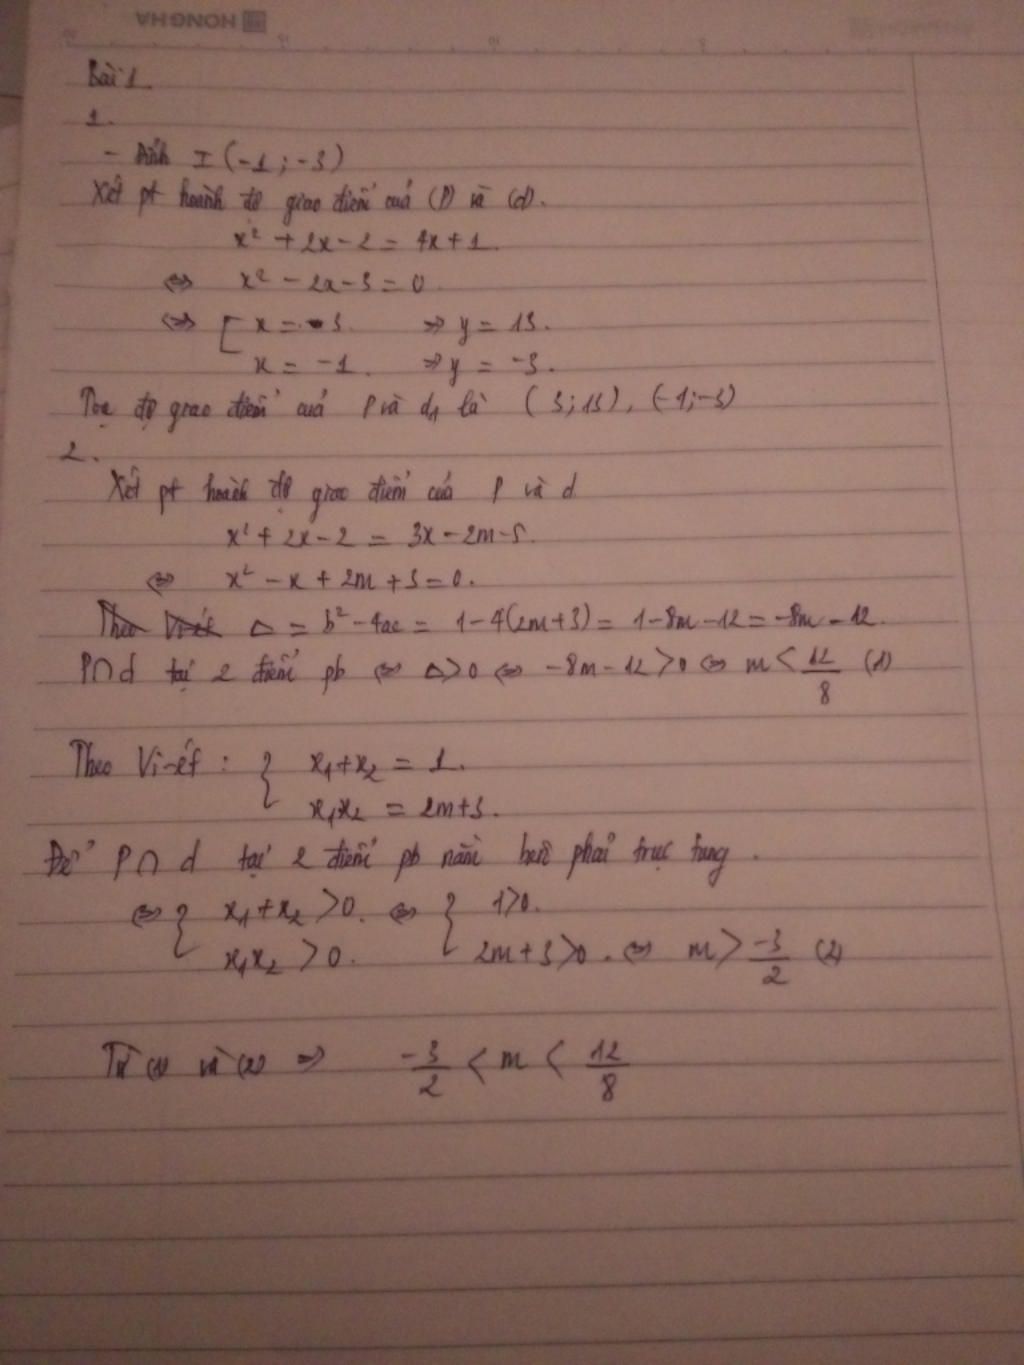 HONG HA
Bài 1
1.
- Đỉnh I (-1 ; -3)
Xét pt hoành độ giao điểm của (P) và (d).
x² + 2x - 2 = 4x + 1.
⇔ x² - 2x - 3 = 0.
⇔ [ x = 3. ⇒ y = 13.
x = -1. ⇒ y = -3.
Toạ độ giao điểm của P và d₁ là (3; 13), (-1; -3)
2.
Xét pt hoành độ giao điểm của P và d
x² + 2x - 2 = 3x - 2m - 5.
⇔ x² - x + 2m + 3 = 0.
Theo Viét Δ = b² - 4ac = 1 - 4(2m + 3) = 1 - 8m - 12 = -8m - 12.
P∩d tại 2 điểm pb ⇔ Δ > 0 ⇔ -8m - 12 > 0 ⇔ m < 12/8 (1)
Theo Vi-ét : { x₁ + x₂ = 1.
x₁x₂ = 2m + 3.
Để P∩d tại 2 điểm pb nằm bên phải trục tung.
⇔ { x₁ + x₂ > 0. ⇔ { 1 > 0.
x₁x₂ > 0. 2m + 3 > 0. ⇔ m > -3/2 (2)
Từ (1) và (2) ⇒ -3/2 < m < 12/8